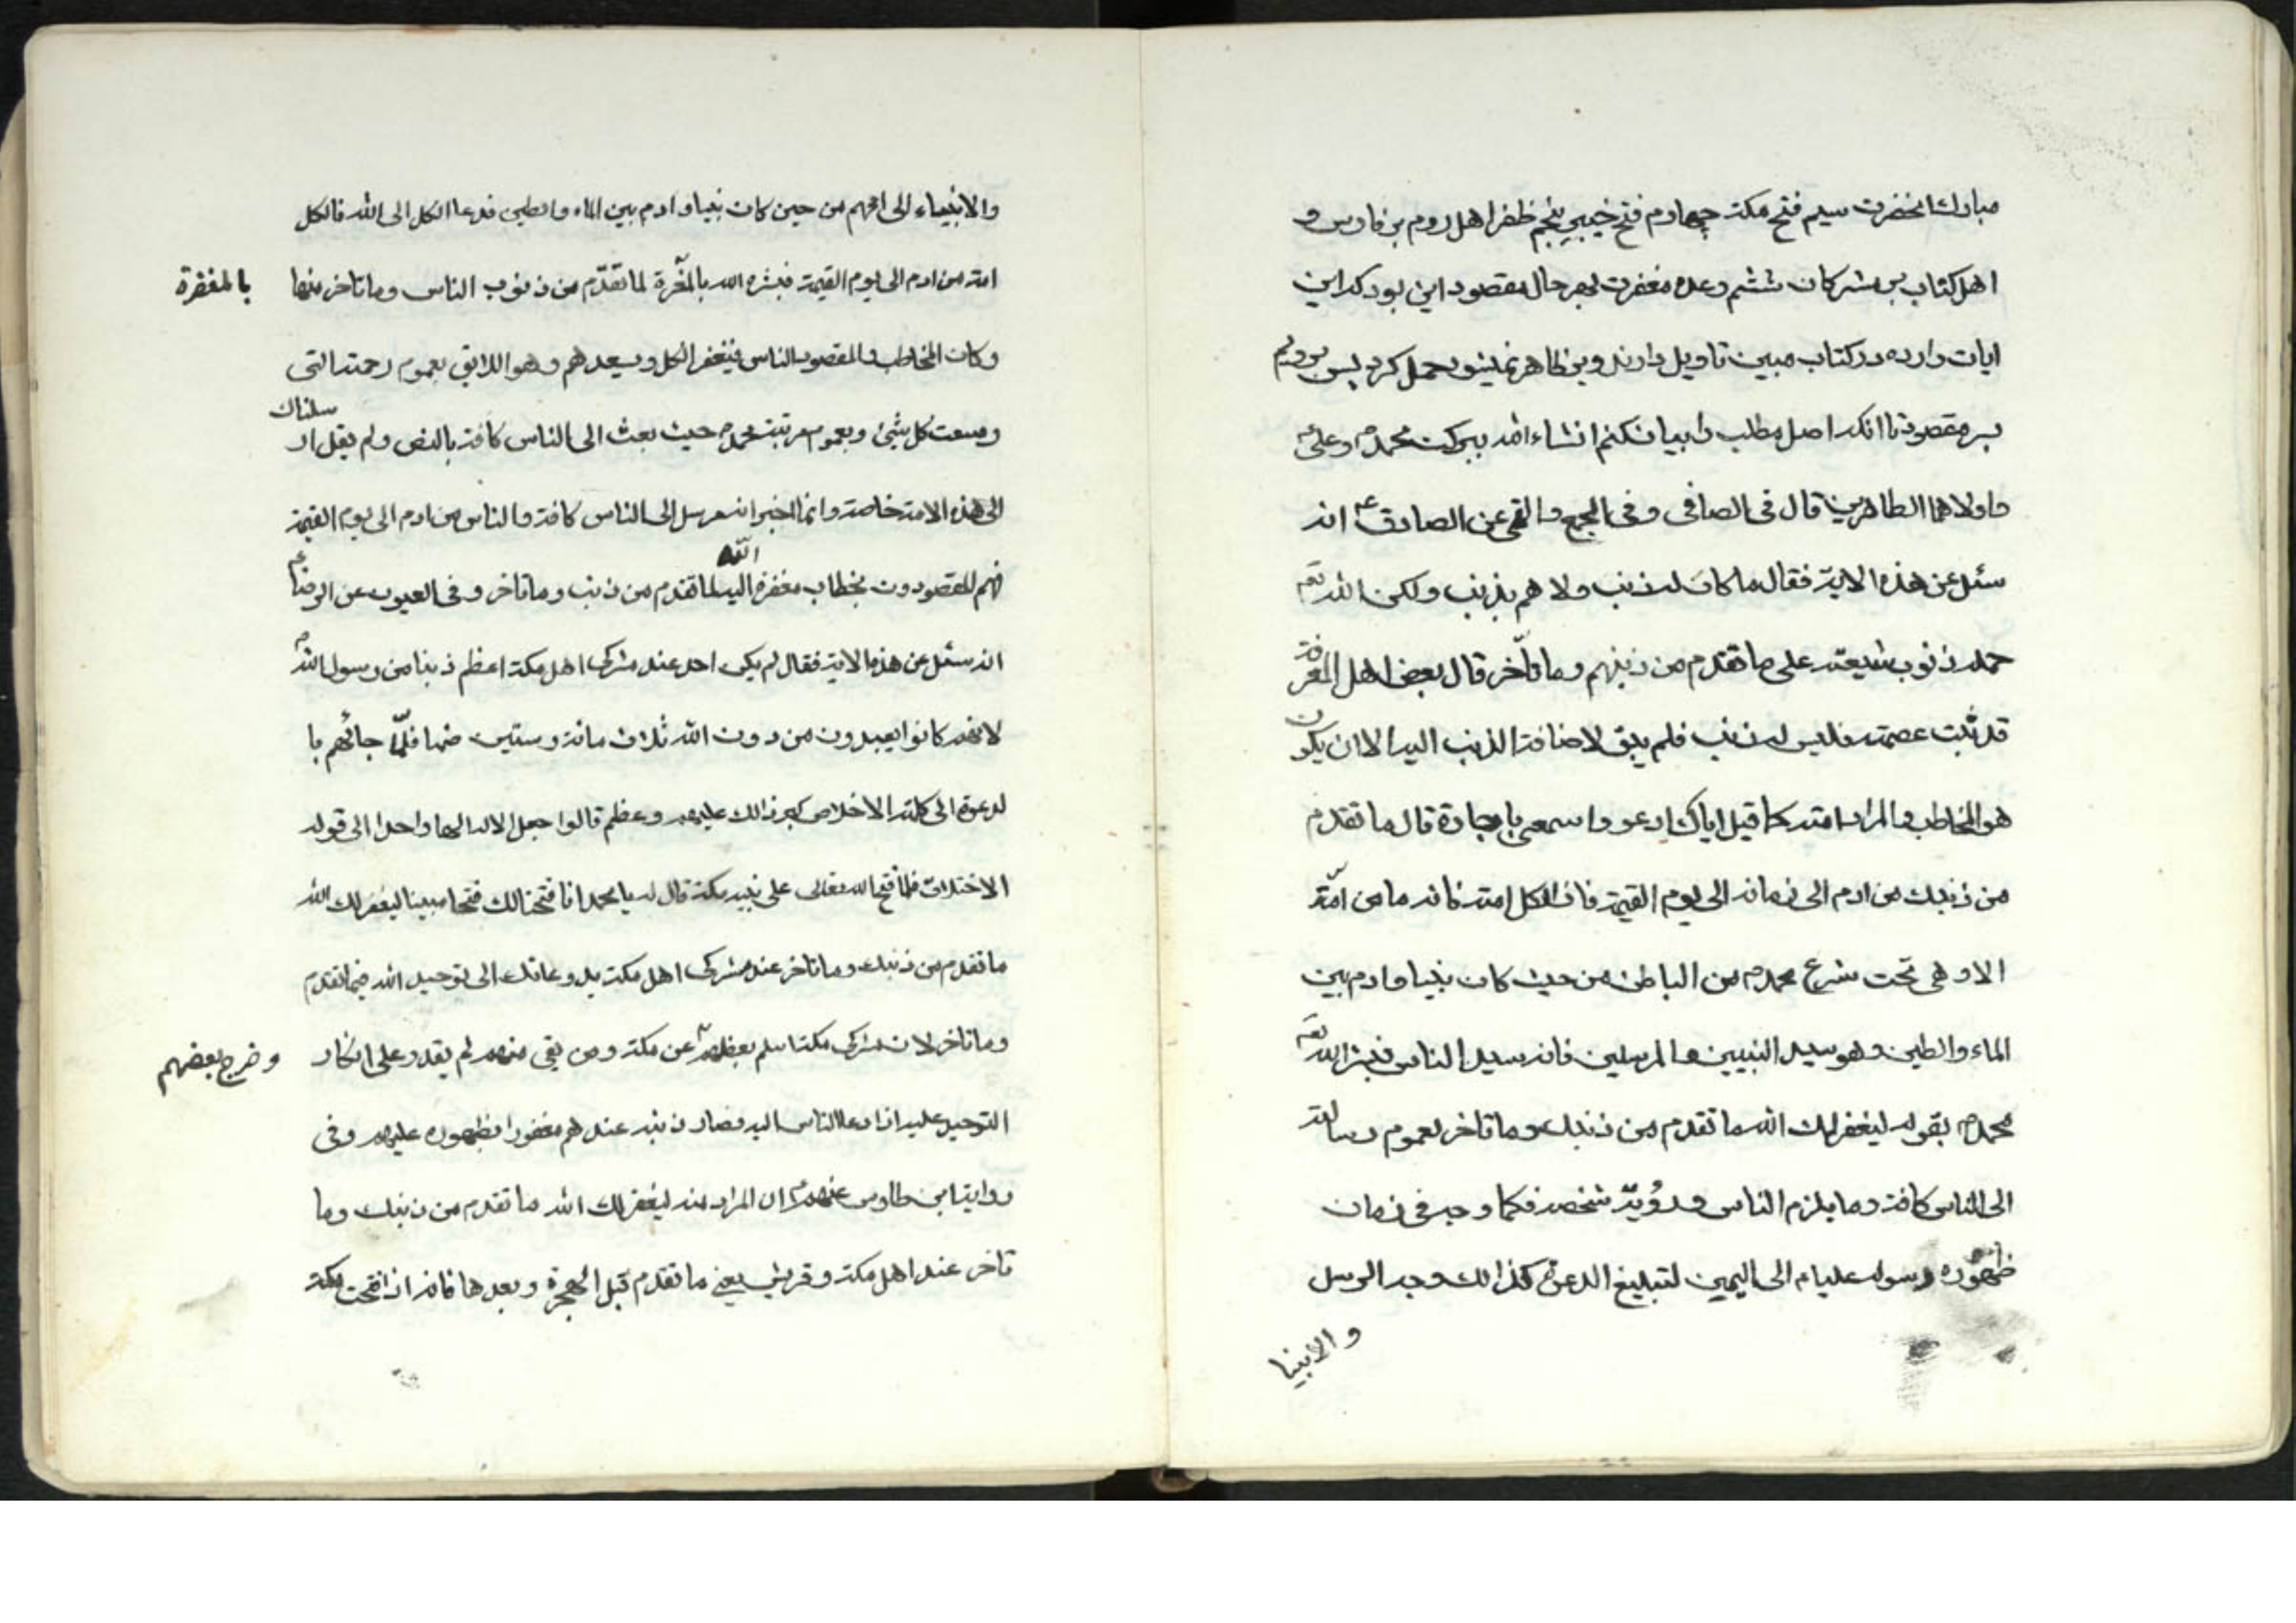 مبارك انحضرت سيم فتح مكه چهارم فتح خيبر پنجم ظفر اهل روم بر فارس و
اهل كتاب بر مشركان ششم وعده مغفرت بهر حال مقصود اين بود كه اين
ايات وارده در كتاب مبين تاويل دارند و بر ظاهر نميشود حمل كرد پس برويم
بر مقصود تا انكه اصل مطلب را بيان كنم انشاء الله ببركت محمد ص وعلى ع
واولاهما الطاهرين قال فى الصافى وفى المجمع والقمى عن الصادق ع انه
سئل عن هذه الاية فقال ما كان له ذنب ولا هم بذنب ولكن الله تعه
حمله ذنوب شيعته على ما تقدم من ذنبهم وما تأخر قال بعض اهل المعرفة
قد ثبت عصمته فليس له ذنب فلم يبق لاضافة الذنب اليه الا ان يكون
هو المخاطب والمراد امته كما قيل اياك ادعو واسمعى يا جارة قال ما تقدم
من ذنبك من ادم الى زمانه الى يوم القيمة فان الكل امته فانه ما من امّة
الا وهى تحت شرع محمد ص من الباطن من حيث كان نبيا وادم بين
الماء والطين وهو سيد النبيين والمرسلين فانه سيد الناس فبشر الله تعه
محمد ص بقوله ليغفر لك الله ما تقدم من ذنبك وما تاخر لعموم رسالته
الى الناس كافة وما يلزم الناس رؤية شخصه فكما وجه فى زمان
ظهوره رسوله عليا ع الى اليمين لتبليغ الدعوة كذالك وجه الرسل
والانبيا
والانبياء الى اممهم من حين كان نبيا وادم بين الماء والطين فدعا الكل الى الله فالكل
امته من ادم الى يوم القيمة فبشره الله بالمغرة لما تقدّم من ذنوب الناس وما تاخر منها
بالمغفرة
وكان المخاطب والمقصود الناس فيغفر الكل ويسعدهم وهو اللايق بعموم رحمته التى
وسعت كل شيئ وبعموم مرتبة محمد ص حيث بعث الى الناس كافة بالنص ولم يقل ار
سلناك
الى هذه الامة خاصة وانما اخبر انه مرسل الى الناس كافة والناس من ادم الى يوم القيمة
الله
فهم المقصودون بخطاب مغفرة اليه لما تقدم من ذنب وما تاخر وفى العيون عن الرضا ع
انه سئل عن هذه الاية فقال لم يكن احد عند مشركى اهل مكة اعظم ذنبا من رسول الله ص
لانهم كانوا يعبدون من دون الله ثلاث مائة وستين صنما فلمّا جائهم با
لدعوة الى كلمة الاخلاص كبر ذالك عليهم وعظم قالوا اجعل الالهه الها واحدا الى قوله
الاختلاق فلما فتح الله تعالى على نبيه مكة قال له يا محمد انا فتحنا لك فتحا مبينا ليغفر لك الله
ما تقدم من ذنبك وما تاخر عند مشركى اهل مكة بدعائك الى توحيد الله فيما تقدم
وما تاخر لان مشركى مكة اسلم بعضهم عن مكة ومن بقى منهم لم يقدر على انكار
وخرج بعضهم
التوحيد عليه اذا دعا الناس اليه فصار ذنبه عندهم مغفورا بظهوره عليهم وفى
رواية ابن طاوس عنهم ع ان المراد منه ليغفر لك الله ما تقدم من ذنبك وما
تاخر عند اهل مكة وقريش يعنى ما تقدم قبل الهجرة وبعدها فانه اذا فتحت مكة